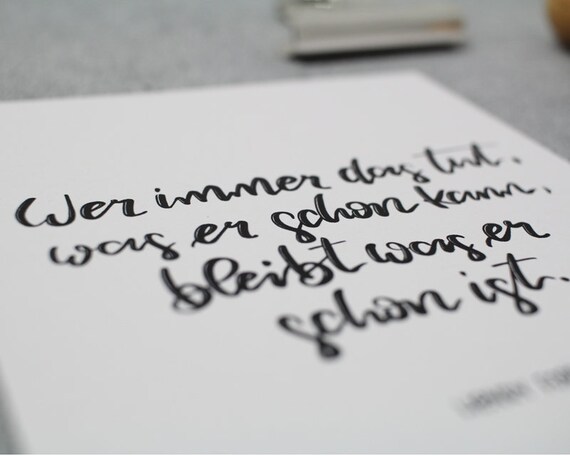 Wer immer das tut,
was er schon kann,
bleibt was er
schon ist.